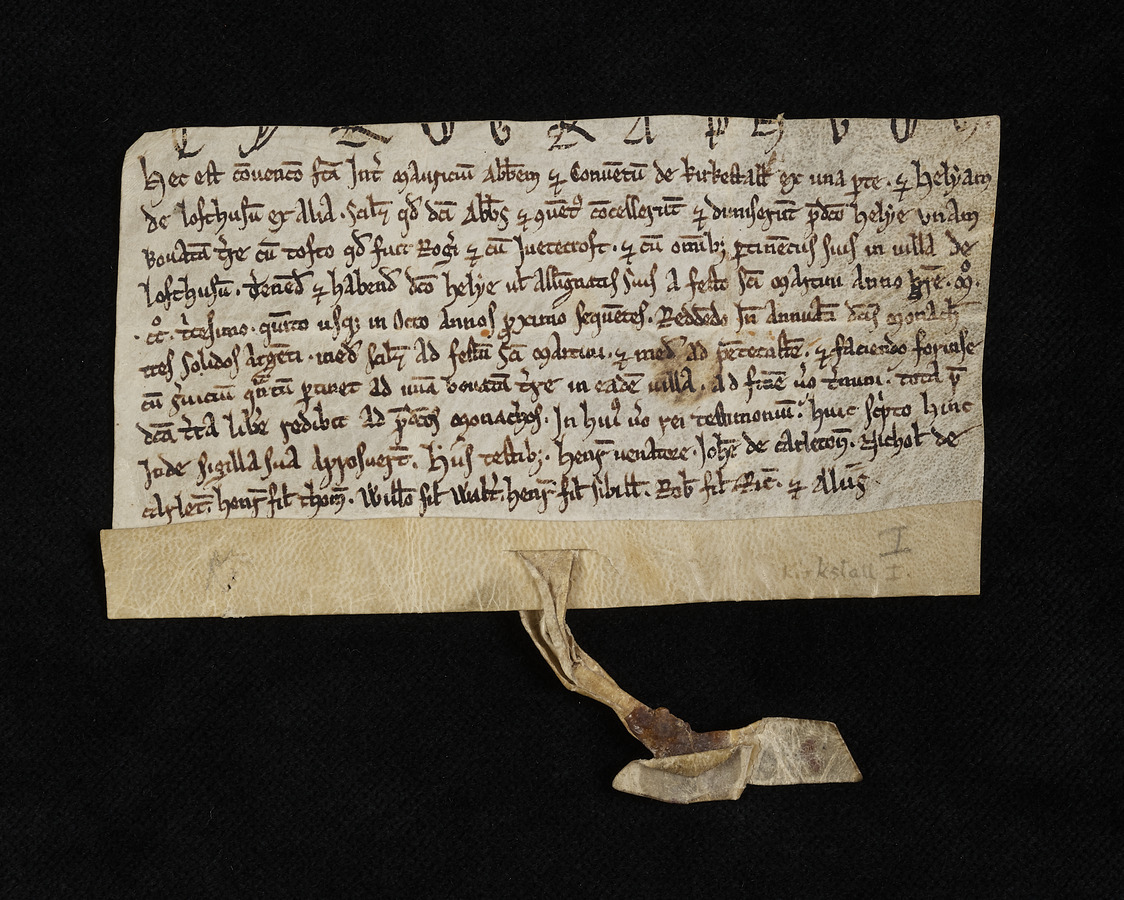 C Y R O G R A P H V
Hec est ꝯuencō fc̄a Int̄ Mauriciū Abbem ⁊ Conuentū de kirkestall ex una ꝑte. ⁊ Helyam
de lofthusū ex Alia. Scilꝫ qd̄ dc̄i Abbs ⁊ ꝯuent9 ꝯcesserūt ⁊ dimiserūt p̄dc̄o helye vnam
bouatā t̄re cū tofto qd̄ fuit Roḡi ⁊ cū Iuetecroft. ⁊ cū omībꝫ ꝑtinēciis suis in villa de
lofthusū. tenēd ⁊ habend̄ dc̄o helye ul̄ Assignatis suis A festo Sc̄i Martini Anno gr̄e. M̊.
cc̊. t̄cesimo. quīto usqꝫ in Octo Annos ꝓximo sequētes. Reddēdo In̄ Annuatī dc̄is monach̄
tres solidos Argēti. med̄ Scilꝫ Ad festū Sc̄i Martini. ⁊ med̄ ad pētecostē. ⁊ faciendo forinse
cū s̄uiciū qn̄tū ꝑtinet ad unā bouatā t̄re in eadē uilla. Ad finē ůo t̄mini. tota p̄
dc̄a t̄ra lib̄e redibit ad p̄dc̄os Monachos. In hui9 ůo rei testimoniū. huic sc̄pto hinc
Inde sigilla sua Apposuer̄t. Hiis testibꝫ. henr̄ uenatore. Joh̄e de carleton̄. Nichol̄ de
carlet̄. henr̄ fil̄ thom̄. Will̄o fil̄ Walt̄. henr̄ fil̄ sibill̄. Rob̄ fil̄ Ric̄. ⁊ Aliis
I
Kirkstall I.